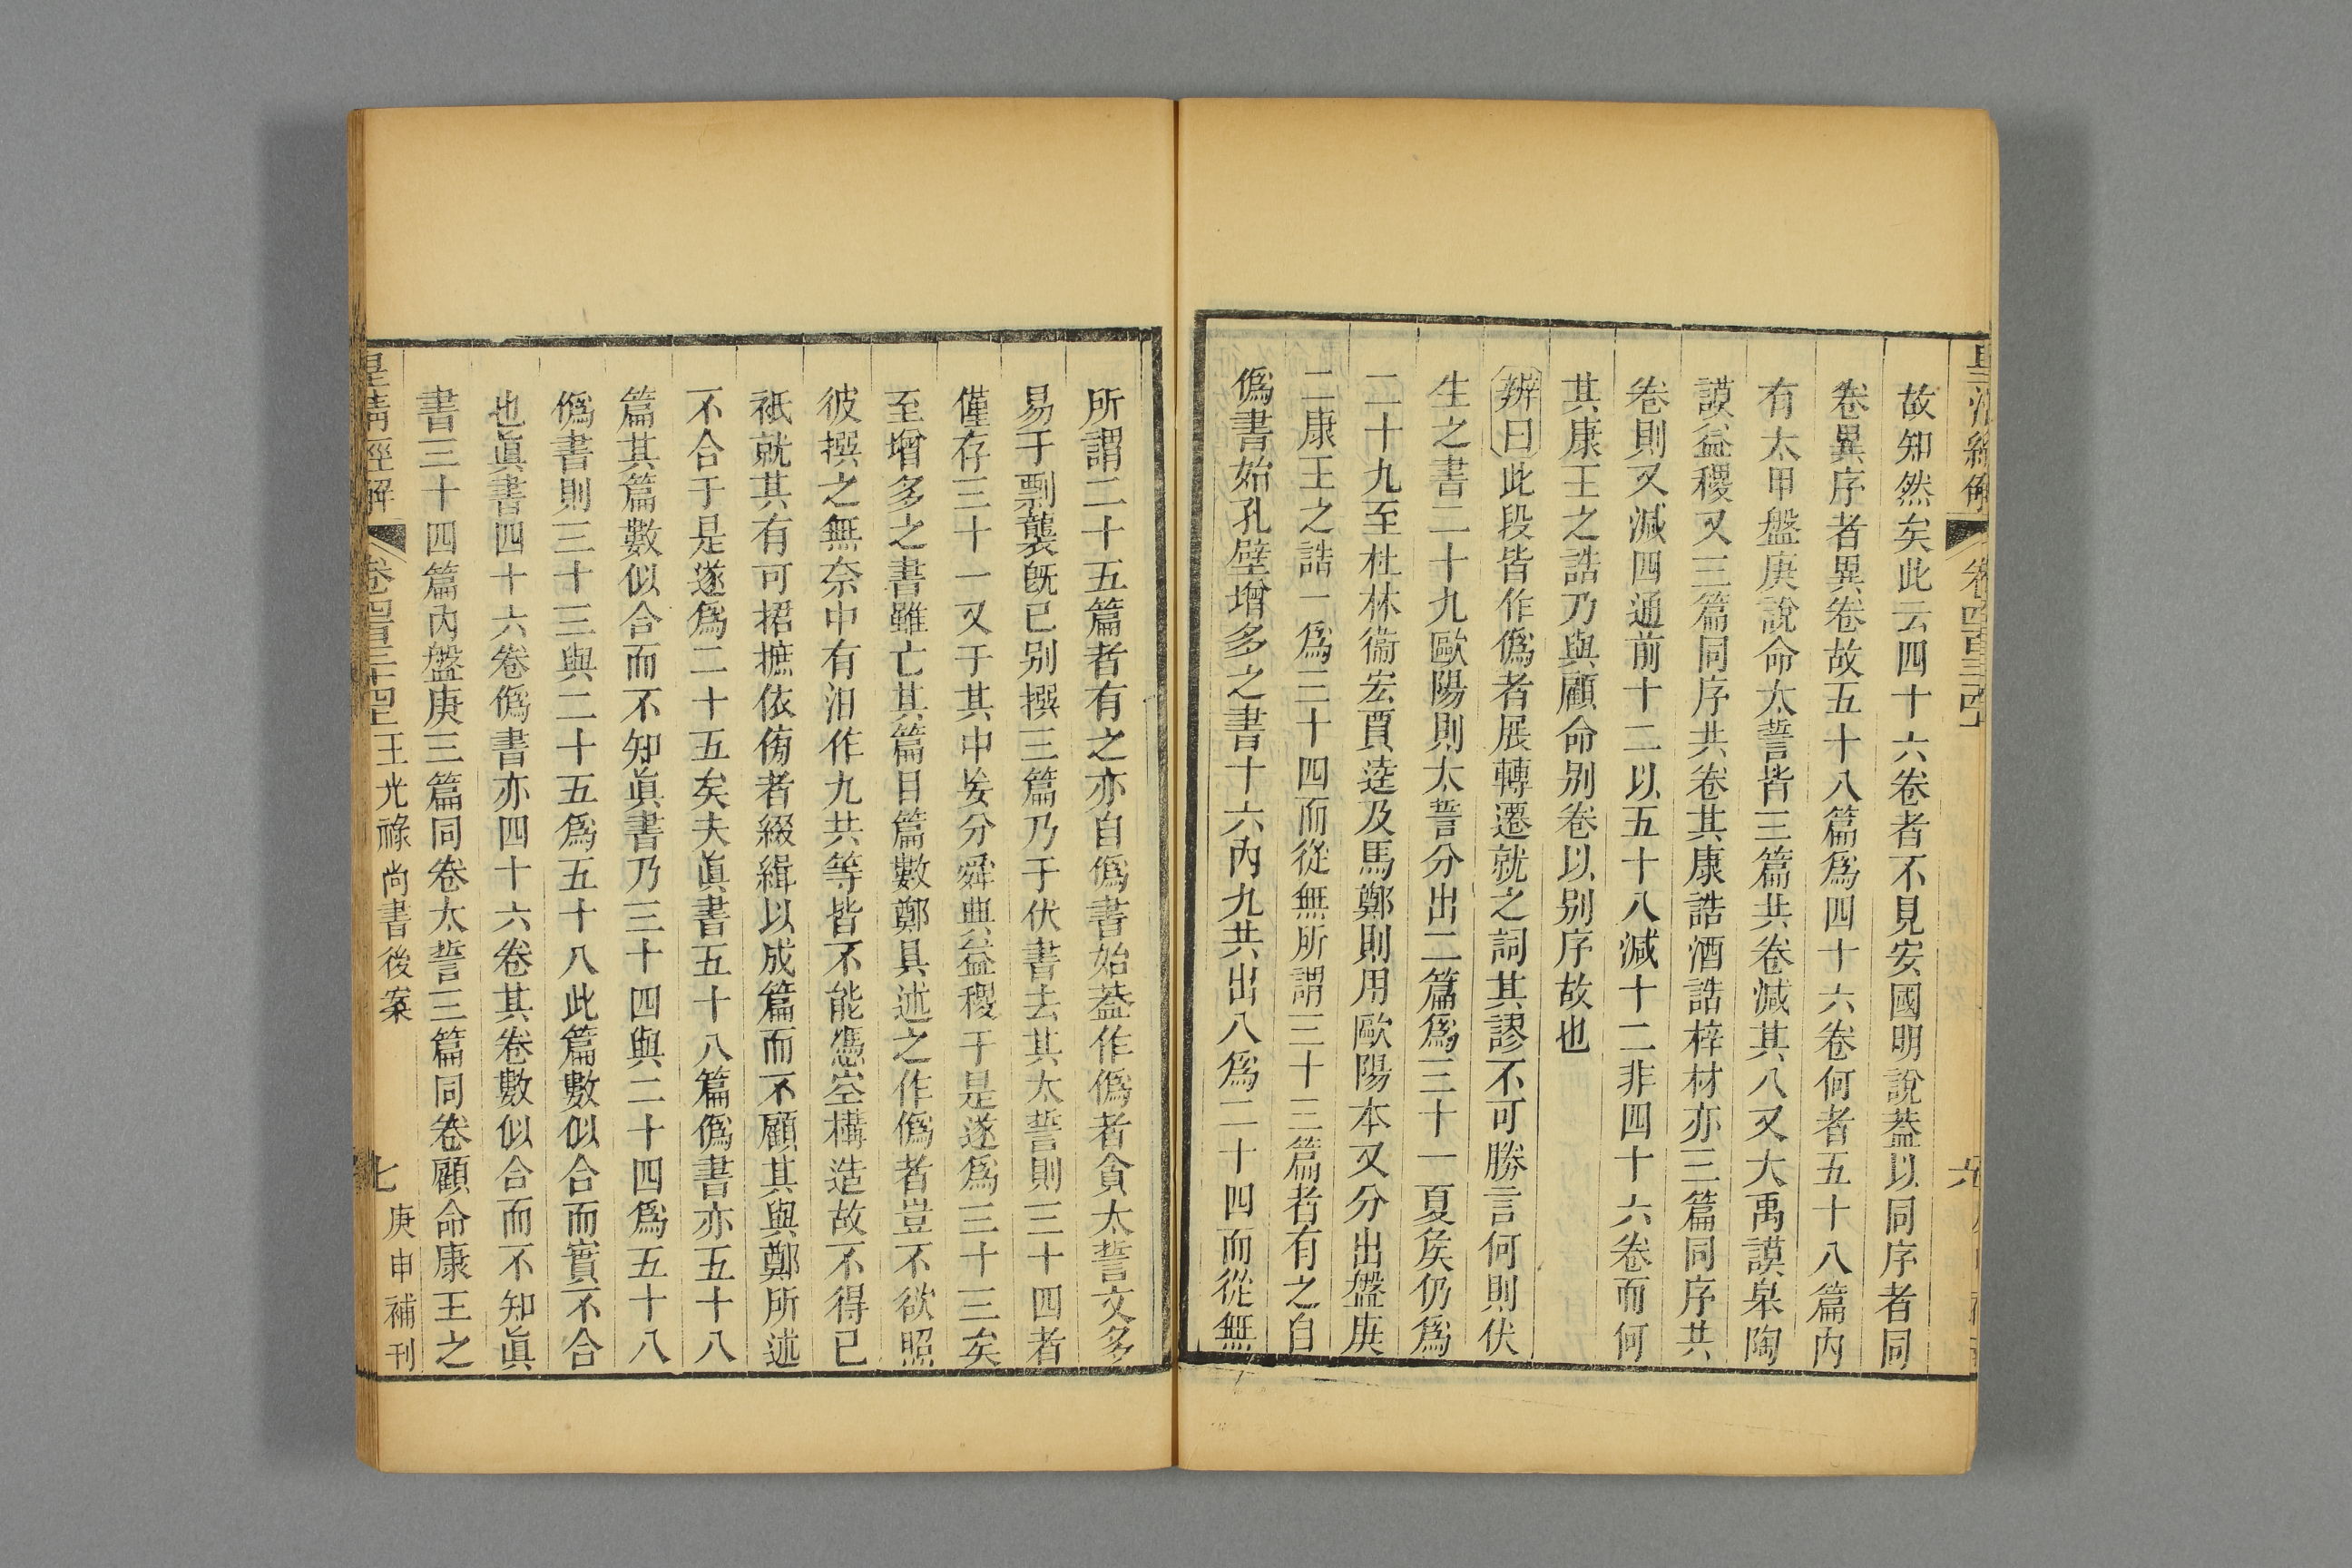 皇清經解 卷四百三十四 六
故知然矣此云四十六卷者不見安國明說葢以同序者同
卷異序者異卷故五十八篇爲四十六卷何者五十八篇內
有太甲盤庚說命太誓皆三篇共卷減其八又大禹謨皋陶
謨益稷又三篇同序共卷其康誥酒誥梓材亦三篇同序共
卷則又減四通前十二以五十八減十二非四十六卷而何
其康王之誥乃與顧命別卷以別序故也
辨曰此段皆作僞者展轉遷就之詞其謬不可勝言何則伏
生之書二十九歐陽則太誓分出二篇爲三十一夏矦仍爲
二十九至杜林衞宏賈逵及馬鄭則用歐陽本又分出盤庚
二康王之誥一爲三十四而從無所謂三十三篇者有之自
僞書始孔壁增多之書十六內九共出八爲二十四而從無
所謂二十五篇者有之亦自僞書始葢作僞者貪太誓文多
易于剽襲旣已別撰三篇乃于伏書去其太誓則三十四者
僅存三十一又于其中妄分舜典益稷于是遂爲三十三矣
至增多之書雖亡其篇目篇數鄭具述之作僞者豈不欲照
彼撰之無奈中有汨作九共等皆不能憑空構造故不得已
祇就其有可捃摭依傍者綴緝以成篇而不顧其與鄭所述
不合于是遂爲二十五矣夫眞書五十八篇僞書亦五十八
篇其篇數似合而不知眞書乃三十四與二十四爲五十八
僞書則三十三與二十五爲五十八此篇數似合而實不合
也眞書四十六卷僞書亦四十六卷其卷數似合而不知眞
書三十四篇內盤庚三篇同卷太誓三篇同卷顧命康王之
皇清經解 卷四百三十四 王光祿尚書後案 七 庚申補刊